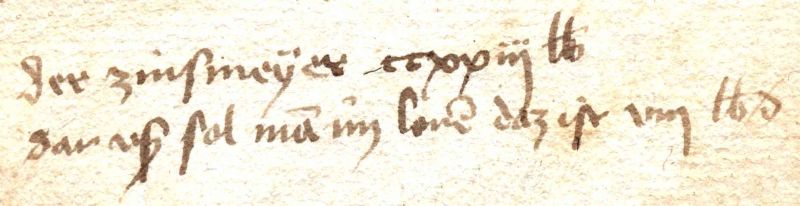 der zinsmeyer ccxxiij lb
dar vß sol mā im lonē daz ist viij lb d